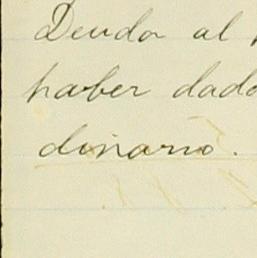 Deudor al
haber dado
dinario.